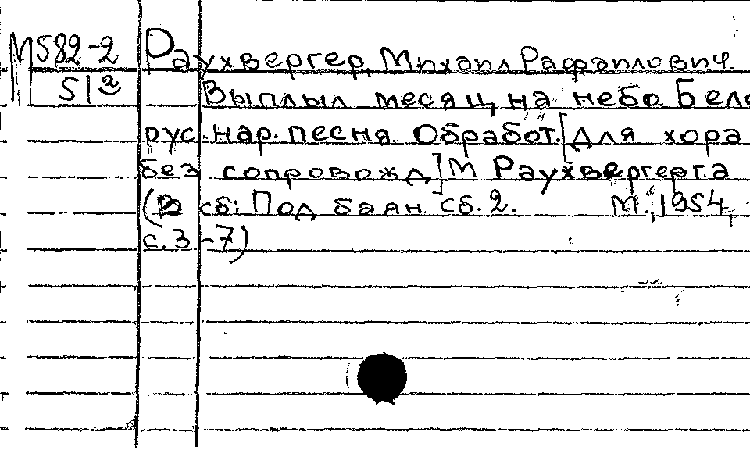 М582-2 Раухвергер, Михаил Рафаилович.
51а Выплыл месяц на небо Бело
рус. нар. песня Обработ. [Для хора
без сопровожд] М Раухвергера
(В сб: Под баян Сб. 2. М., 1954,
с. 3-7)